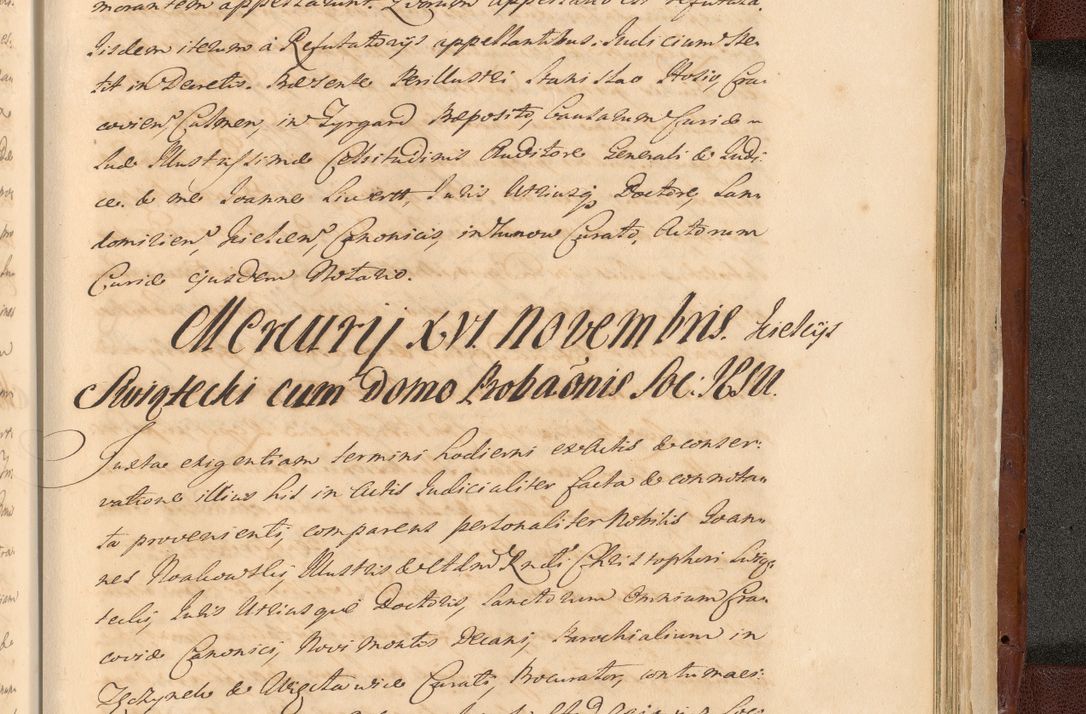 morantem appellarunt. Quorum appellatio est refutata.
Iisdem iterum à Refutatorijs appellantibus. Iudicium ste-
tit in Decretis. Præsente Perillustri Stanislao Hosio, Cra-
covien, Culmen, in Gyrgard Præposito, Causarum Curiæ
suæ Illustrissimæ Celsitudinis Auditore Generali & Iudi-
ce. & me Joanne Liwertt, Juris Utriusq; Doctore, San-
domirien, Kielcen, Canonico, in Tunow Curato, Actorum
Curiæ ejusdem Notario.
Mercurij XVI Novembris. Kielcijs
Swiątecki cum Domo Probaõnis Soc: JESU.
Juxta exigentiam termini hodierni ex Actis & conser-
vatione illius his in Actis Judicialiter facta & connota-
ta provenienti, comparens personaliter Nobilis Joan-
nes Noakowski, Illustris & Adm Rndi Christophori Swią-
tecki, Juris Utriusque Doctoris, Sanctorum Omnium Cra-
coviæ Canonici, Novi Montis Decani, Parochialium in
Tęczynek & Uięcławice Curati, Procurator, contumaci-